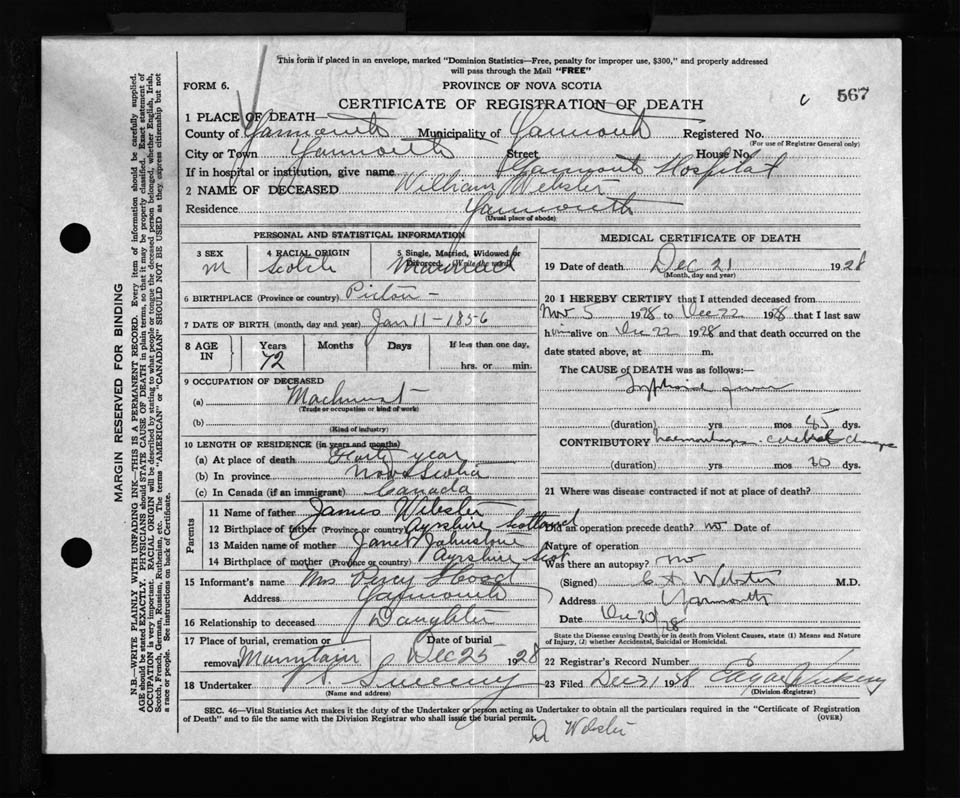 This form if placed in an envelope, marked "Dominion Statistics—Free, penalty for improper use, $300," and properly addressed
will pass through the Mail "FREE"
FORM 6.
PROVINCE OF NOVA SCOTIA
CERTIFICATE OF REGISTRATION OF DEATH
567
1 PLACE OF DEATH—
County of Yarmouth Municipality of Yarmouth Registered No.
(For use of Registrar General only)
City or Town Yarmouth Street House No.
If in hospital or institution, give name Yarmouth Hospital
2 NAME OF DECEASED William Webster
Residence Yarmouth
(Usual place of abode)
PERSONAL AND STATISTICAL INFORMATION
3 SEX M
4 RACIAL ORIGIN Scotch
5 Single, Married, Widowed or Divorced. (Write the word)
6 BIRTHPLACE (Province or country) Pictou -
7 DATE OF BIRTH (month, day and year) Jan 11 - 1856
8 AGE IN Years 72 Months Days If less than one day, hrs. or min.
9 OCCUPATION OF DECEASED
(a) Machinist
(Trade or occupation or kind of work)
(b)
(Kind of industry)
10 LENGTH OF RESIDENCE (in years and months)
(a) At place of death year
(b) In province Nova Scotia
(c) In Canada (if an immigrant) Canada
Parents
11 Name of father James Webster
12 Birthplace of father (Province or country) Ayrshire Scotland
13 Maiden name of mother Janet Johnstone
14 Birthplace of mother (Province or country) Ayrshire Scot
15 Informant's name Mrs Percy
Address Yarmouth
16 Relationship to deceased Daughter
17 Place of burial, cremation or removal Mountain
Date of burial Dec 25 1928
18 Undertaker Sweeny
(Name and address)
MEDICAL CERTIFICATE OF DEATH
19 Date of death Dec 21 1928
(Month, day and year)
20 I HEREBY CERTIFY that I attended deceased from
Nov 5 1928 to Dec 22 1928 that I last saw
him alive on Dec 22 1928 and that death occurred on
date stated above, at m.
The CAUSE of DEATH was as follows:—
Typhoid fever
(duration) yrs mos 45 dys.
CONTRIBUTORY haemorrhage. cerebral
(duration) yrs mos 30 dys.
21 Where was disease contracted if not at place of death?
Did an operation precede death? no Date of
Nature of operation
Was there an autopsy? no
(Signed) C A Webster M.D.
Address Yarmouth
Date Dec 30/28
State the Disease causing Death, or in death from Violent Causes, state (1) Means and Nature
of Injury, (2) whether Accidental, Suicidal or Homicidal.
22 Registrar's Record Number
23 Filed Dec 31 1928
(Division Registrar)
SEC. 46—Vital Statistics Act makes it the duty of the Undertaker or person acting as Undertaker to obtain all the particulars required in the "Certificate of Registration
of Death" and to file the same with the Division Registrar who shall issue the burial permit.
(OVER)
Webster
MARGIN RESERVED FOR BINDING
N.B.—WRITE PLAINLY WITH UNFADING INK—THIS IS A PERMANENT RECORD. Every item of information should be carefully supplied.
AGE should be stated EXACTLY. PHYSICIANS should STATE CAUSE OF DEATH in plain terms, so that it may be properly classified. Exact statement of
OCCUPATION is very important. RACIAL ORIGIN will be described by stating to what people or tongue the deceased person belonged, whether English, Irish,
Scotch, French, German, Russian, Ruthenian, etc. The terms "AMERICAN" or "CANADIAN" SHOULD NOT BE USED as they express citizenship but not
a race or people. See instructions on back of Certificate.